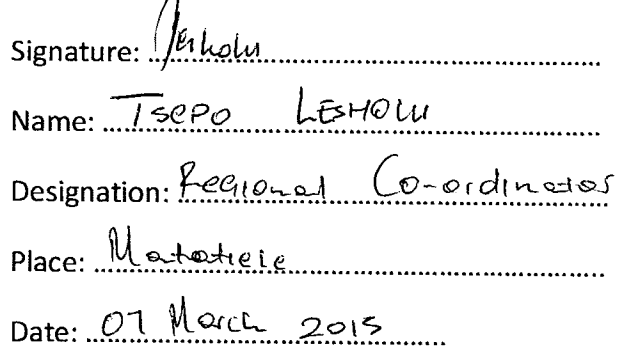 Signature: Lesholu
Name: Tsepo LESHOLU
Designation: Regional Co-ordinator
Place: Matatiele
Date: 07 March 2015